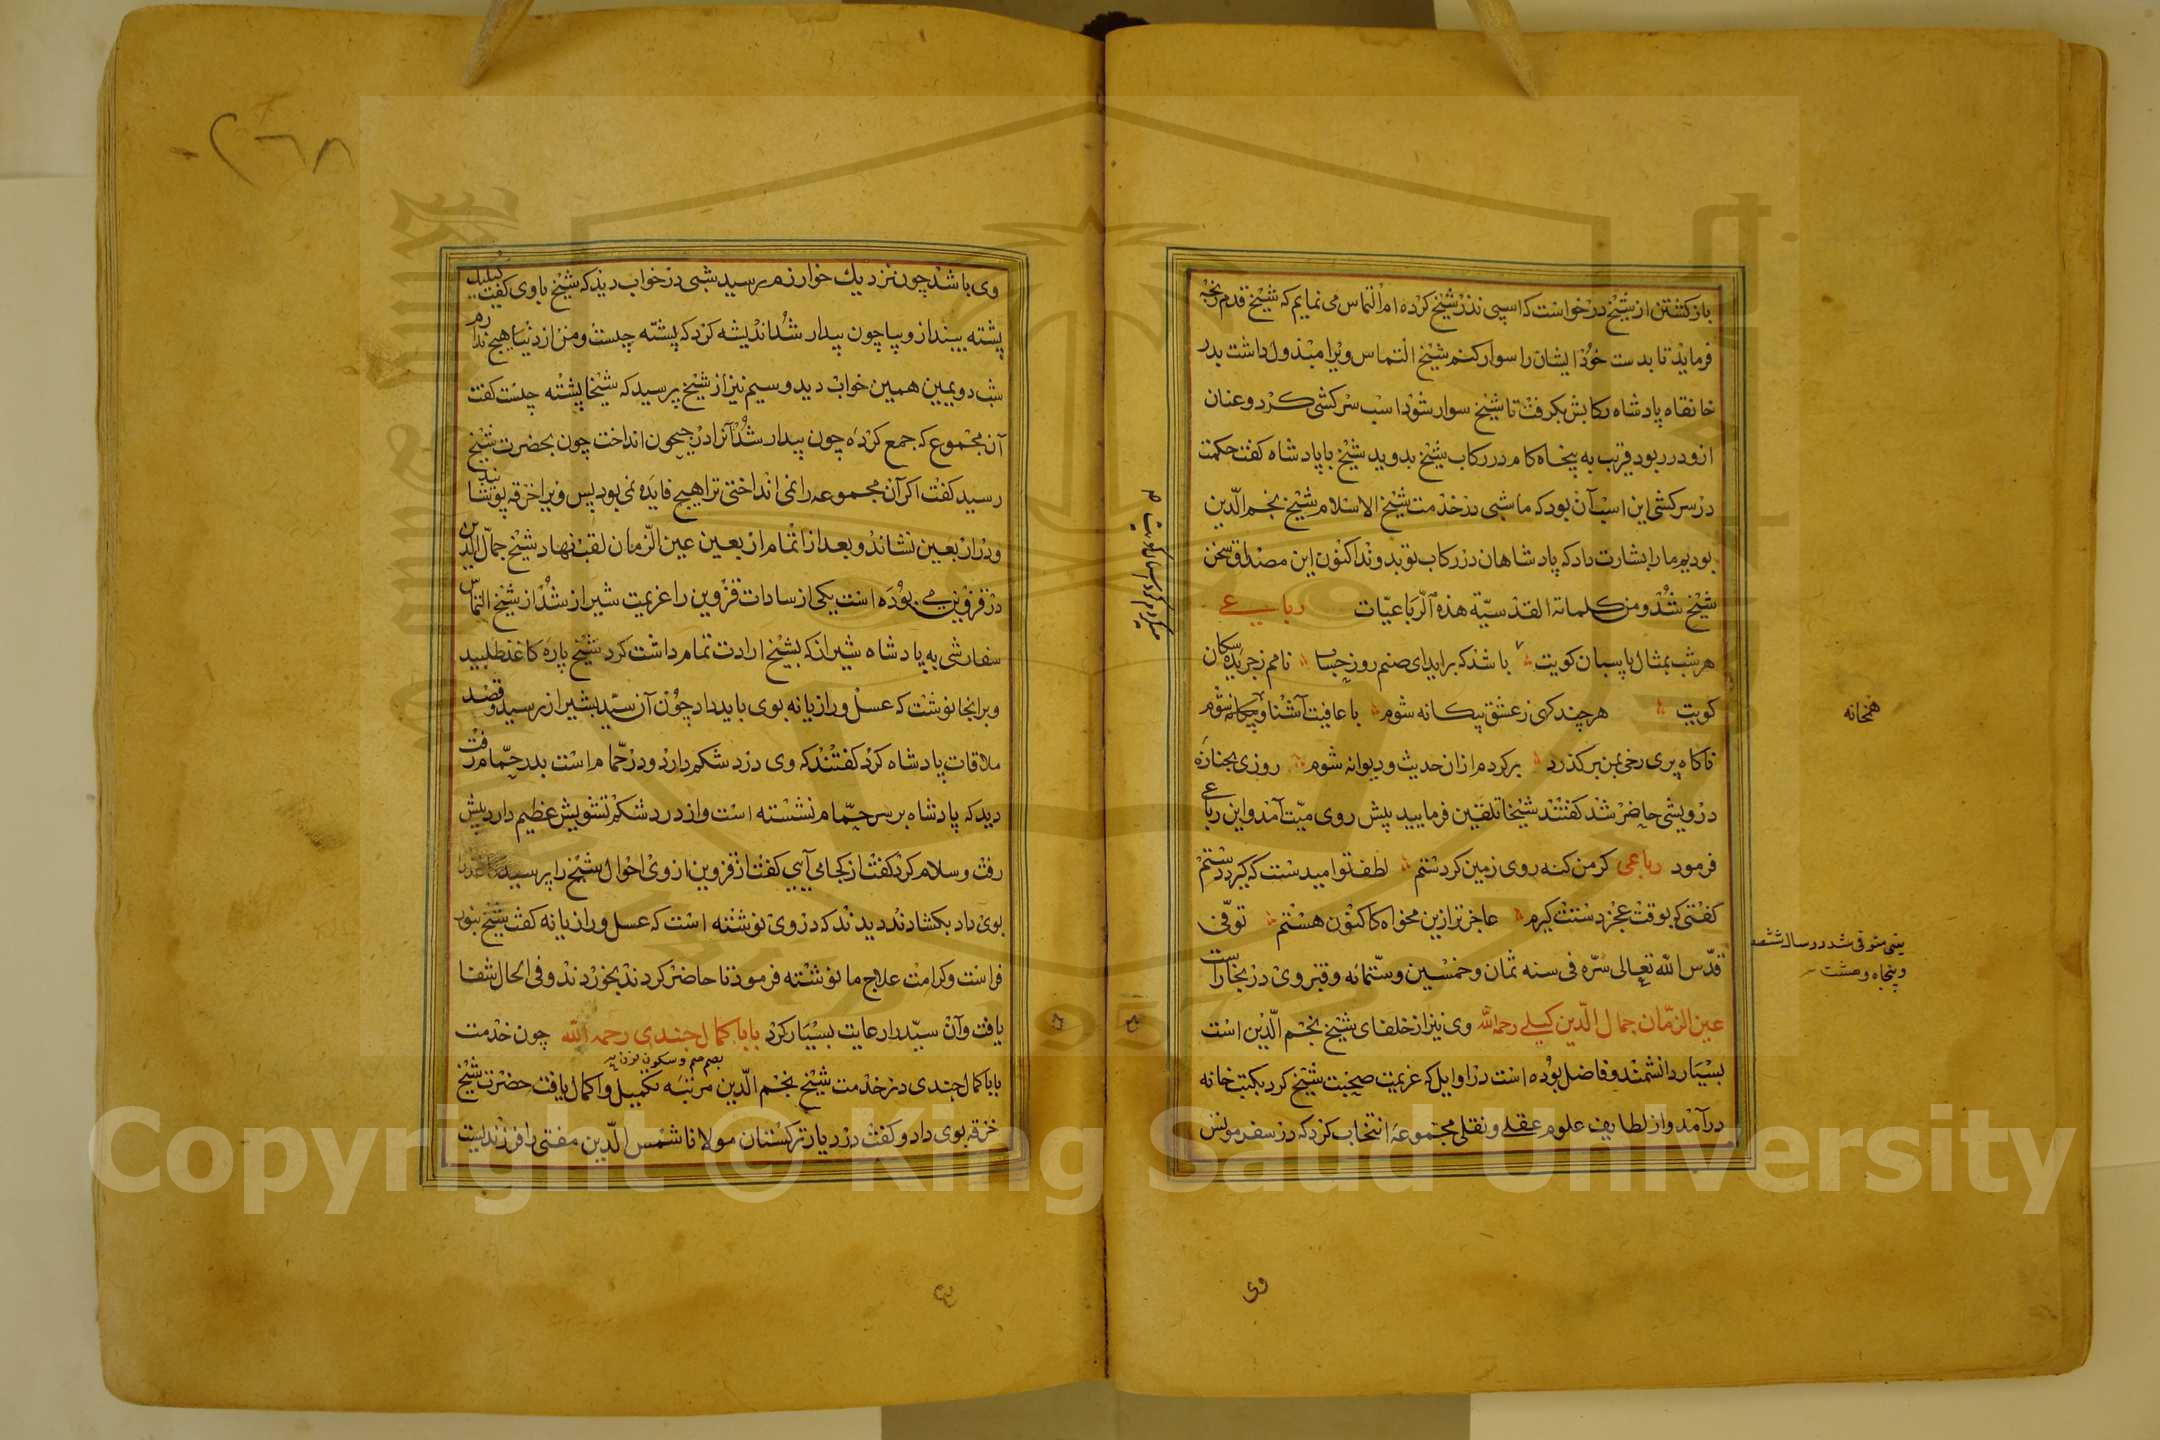 باز کشتن از شیخ درخواست که اسپی نذر شیخ کرده ام التماس می نمایم که شیخ قدم رنجه
فرماید تا بدست خود ایشان را سوار کنم شیخ التماس ویرا مبذول داشت بدر
خانقاه پادشاه رکابش بکرفت تا شیخ سوار شود اسب سرکشی کرد و عنان
ازو در ربود قریب به پنجاه کام در رکاب شیخ بدوید شیخ با پادشاه کفت حکمت
در سرکشی این اسب آن بود که ما شبی در خدمت شیخ الاسلام شیخ نجم الدین
بودیم ما را بشارت داد که پادشاهان در رکاب تو بدوند اکنون این مصداق سخن
شیخ شد ومن کلماته القدسیّة هذه الرباعیّات رباعی
هر شب بمثال پاسبان کویت باشد که براید ای صنم روز حساب نامم ز جریده سکان
کویت هر چند کهی ز عشق بیکانه شوم با عافیت آشنا و بیکانه شوم
ناکاه پری رخی بمن بر کذرد برکردم ازان حدیث و دیوانه شوم روزی بجنازه
درویشی حاضر شد کفتند شیخا تلقین فرمایید پیش روی میّت آمد واین رباعی
فرمود رباعی کر من کنه روی زمین کردستم لطف تو امیدست که کیرد دستم
کفتی که بوقت عجز دستت کیرم عاجز تر ازین مخواه کاکنون هستم توفّی
قدّس الله تعالی سرّه فی سنه ثمان وخمسین وستّمائه وقبر وی در بخاراست
عین الزمان جمال الدین کیلی رحمه الله وی نیز از خلفای شیخ نجم الدین است
بسیار دانشمند و فاضل بوده است در اوایل که عزیمت صحبت شیخ کرد بکتب خانه
درآمد و از لطایف علوم عقلی و نقلی مجموعه انتخاب کرد که در سفر مونس
همخانه
یعنی متوفی شد در سال ششصد
و پنجاه و هشت
وی
وی باشد چون نزدیك خوارزم رسید شبی در خواب دید که شیخ با وی کفت کیلیك
پشته بینداز و بیا چون بیدار شد اندیشه کرد که پشته چیست و من از دنیا هیچ ندارم
شب دویمین همین خواب دید و سیم نیز از شیخ پرسید که شیخا پشته چیست کفت
آن مجموع که جمع کرده چون بیدار شد آنرا در جیحون انداخت چون بحضرت شیخ
رسید کفت اکر آن مجموعه را نمی انداختی ترا هیچ فایده نمی بود پس ویرا خرقه پوشانید
و در اربعین نشاند و بعد از اتمام اربعین عین الزمان لقب نهاد شیخ جمال الدین
در قزوین می بوده است یکی از سادات قزوین را عزیمت شیراز شد از شیخ التماس
سفارشی به پادشاه شیراز که بشیخ ارادت تمام داشت کرد شیخ پاره کاغذ طلبید
و برانجا نوشت که عسل و رازیانه بوی باید داد چون آن سید بشیراز رسید و قصد
ملاقات پادشاه کرد کفتند که وی درد شکم دارد و در حمّام است بدر حمّام رفت
دید که پادشاه بر سر حمّام نشسته است و از درد شکم تشویش عظیم دارد پیش
رفت و سلام کرد کفت از کجا می آیی کفت از قزوین از وی احوال شیخ را پرسید کاغذ را
بوی داد بکشادند دیدند که در وی نوشته است که عسل و رازیانه کفت شیخ بنور
فراست و کرامت علاج ما نوشته فرمود تا حاضر کردند بخوردند و فی الحال شفا
یافت و آن سیّد را رعایت بسیار کرد بابا کمال جندی رحمه الله چون خدمت
بابا کمال جندی در خدمت شیخ نجم الدین مرتبه تکمیل و اکمال یافت حضرت شیخ
خرقه بوی داد و کفت در دیار ترکستان مولانا شمس الدین مفتی را فرزندیست
Copyright © King Saud University
1957